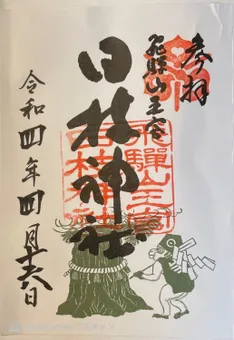 参拜
飛騨山王宮
日枝神社
飛騨山王宮
日枝神社
令和四年四月十六日